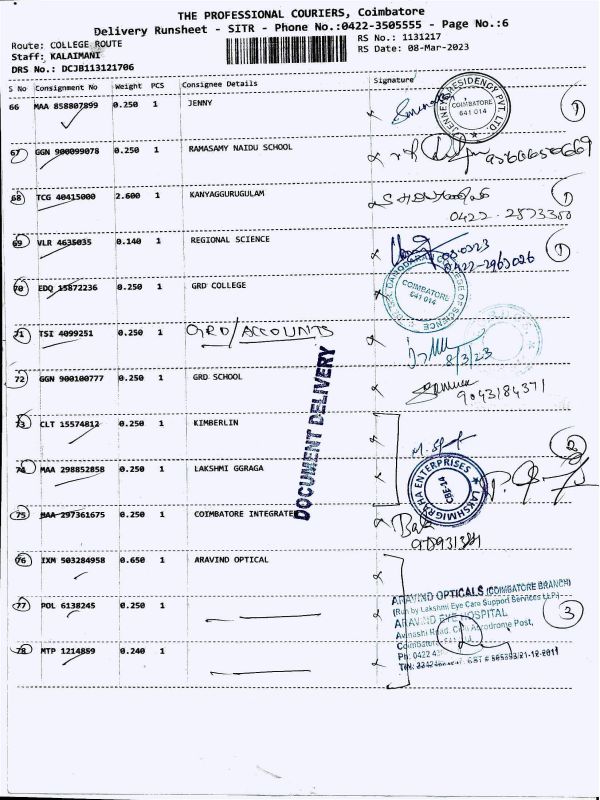 THE PROFESSIONAL COURIERS, Coimbatore
Delivery Runsheet - SITR - Phone No.:0422-3505555 - Page No.:6
Route: COLLEGE ROUTE
RS No.: 1131217
Staff: KALAIMANI
RS Date: 08-Mar-2023
DRS No.: DCJB113121706
S No Consignment No Weight PCS Consignee Details Signature
66 MAA 858807899 0.250 1 JENNY
COIMBATORE
641 014
1
67 GGN 900099078 0.250 1 RAMASAMY NAIDU SCHOOL
68 TCG 40415000 2.600 1 KANYAGGURUGULAM
1
69 VLR 4635035 0.140 1 REGIONAL SCIENCE
0422-2963026
1
70 EDQ 15872236 0.250 1 GRD COLLEGE
COIMBATORE
641 014
71 TSI 4099251 0.250 1 GRD/ACCOUNTS
8/3/23
72 GGN 900100777 0.250 1 GRD SCHOOL
9043184371
DOCUMENT DELIVERY
73 CLT 15574812 0.250 1 KIMBERLIN
2
74 MAA 298852858 0.250 1 LAKSHMI GGRAGA
LAKSHMIGRAHA ENTERPRISES
CBE-14
75 MAA 297361675 0.250 1 COIMBATORE INTEGRATE
76 IXM 503284958 0.650 1 ARAVIND OPTICAL
ARAVIND OPTICALS (COIMBATORE BRANCH)
(Run by Lakshmi Eye Care Support Services LLP.)
77 POL 6138245 0.250 1
ARAVIND EYE HOSPITAL
3
Avinashi Road, Civil Aerodrome Post,
78 MTP 1214859 0.240 1